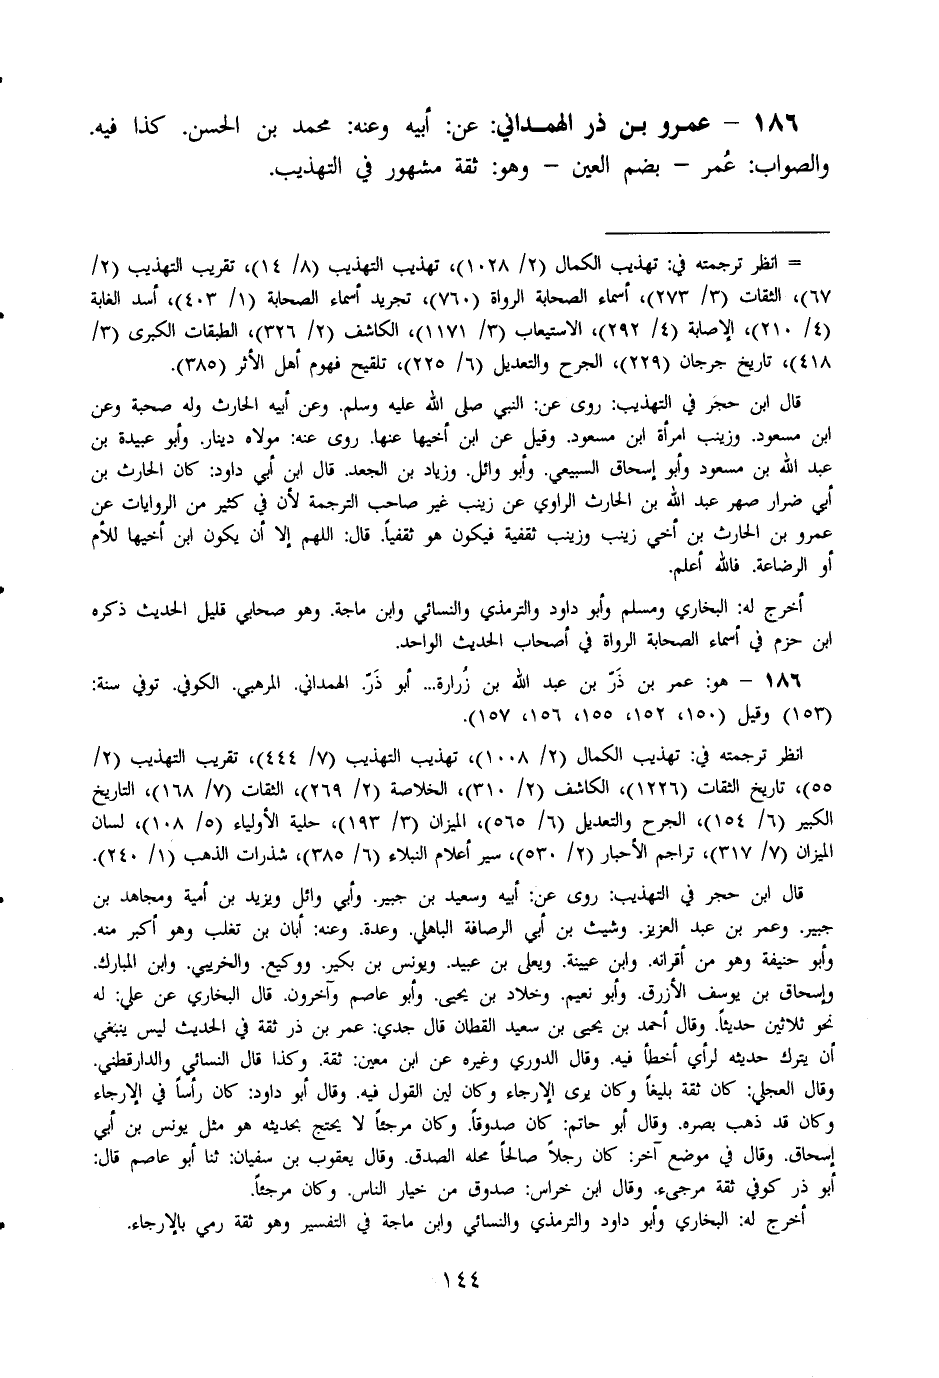 ١٨٦ – عمرو بن ذر الهمداني: عن: أبيه وعنه: محمد بن الحسن. كذا فيه.
والصواب: عُمر – بضم العين – وهو: ثقة مشهور في التهذيب.
= انظر ترجمته في: تهذيب الكمال (٢/ ١٠٢٨)، تهذيب التهذيب (٨/ ١٤)، تقريب التهذيب (٢/
٦٧)، الثقات (٣/ ٢٧٣)، أسماء الصحابة الرواة (٧٦٠)، تجريد أسماء الصحابة (١/ ٤٠٣)، أسد الغابة
(٤/ ٢١٠)، الإصابة (٤/ ٢٩٢)، الاستيعاب (٣/ ١١٧١)، الكاشف (٢/ ٣٢٦)، الطبقات الكبرى (٣/
٤١٨)، تاريخ جرجان (٢٢٩)، الجرح والتعديل (٦/ ٢٢٥)، تلقيح فهوم أهل الأثر (٣٨٥).
قال ابن حجر في التهذيب: روى عن: النبي صلى الله عليه وسلم. وعن أبيه الحارث وله صحبة وعن
ابن مسعود. وزينب امرأة ابن مسعود. وقيل عن ابن أخيها عنها. روى عنه: مولاه دينار. وأبو عبيدة بن
عبد الله بن مسعود وأبو إسحاق السبيعي. وأبو وائل. وزياد بن الجعد. قال ابن أبي داود: كان الحارث بن
أبي ضرار صهر عبد الله بن الحارث الراوي عن زينب غير صاحب الترجمة لأن في كثير من الروايات عن
عمرو بن الحارث بن أخي زينب وزينب ثقفية فيكون هو ثقفياً. قال: اللهم إلا أن يكون ابن أخيها للأم
أو الرضاعة. فالله أعلم.
أخرج له: البخاري ومسلم وأبو داود والترمذي والنسائي وابن ماجة. وهو صحابي قليل الحديث ذكره
ابن حزم في أسماء الصحابة الرواة في أصحاب الحديث الواحد.
١٨٦ – هو: عمر بن ذَرّ بن عبد الله بن زُرارة... أبو ذَرّ. الهمداني. المرهبي. الكوفي. توفي سنة:
(١٥٣) وقيل (١٥٠، ١٥٢، ١٥٥، ١٥٦، ١٥٧).
انظر ترجمته في: تهذيب الكمال (٢/ ١٠٠٨)، تهذيب التهذيب (٧/ ٤٤٤)، تقريب التهذيب (٢/
٥٥)، تاريخ الثقات (١٢٢٦)، الكاشف (٢/ ٣١٠)، الخلاصة (٢/ ٢٦٩)، الثقات (٧/ ١٦٨)، التاريخ
الكبير (٦/ ١٥٤)، الجرح والتعديل (٦/ ٥٦٥)، الميزان (٣/ ١٩٣)، حلية الأولياء (٥/ ١٠٨)، لسان
الميزان (٧/ ٣١٧)، تراجم الأحبار (٢/ ٥٣٠)، سير أعلام النبلاء (٦/ ٣٨٥)، شذرات الذهب (١/ ٢٤٠).
قال ابن حجر في التهذيب: روى عن: أبيه وسعيد بن جبير. وأبي وائل ويزيد بن أمية ومجاهد بن
جبير. وعمر بن عبد العزيز. وشيث بن أبي الرصافة الباهلي. وعدة. وعنه: أبان بن تغلب وهو أكبر منه.
وأبو حنيفة وهو من أقرانه. وابن عيينة. ويعلى بن عبيد. ويونس بن بكير. ووكيع. والخريبي. وابن المبارك.
وإسحاق بن يوسف الأزرق. وأبو نعيم. وخلاد بن يحيى. وأبو عاصم وآخرون. قال البخاري عن علي: له
نحو ثلاثين حديثاً. وقال أحمد بن يحيى بن سعيد القطان قال جدي: عمر بن ذر ثقة في الحديث ليس ينبغي
أن يترك حديثه لرأي أخطأ فيه. وقال الدوري وغيره عن ابن معين: ثقة. وكذا قال النسائي والدارقطني.
وقال العجلي: كان ثقة بليغاً وكان يرى الإرجاء وكان لين القول فيه. وقال أبو داود: كان رأساً في الإرجاء
وكان قد ذهب بصره. وقال أبو حاتم: كان صدوقاً. وكان مرجئاً لا يحتج بحديثه هو مثل يونس بن أبي
إسحاق. وقال في موضع آخر: كان رجلاً صالحاً محله الصدق. وقال يعقوب بن سفيان: ثنا أبو عاصم قال:
أبو ذر كوفي ثقة مرجىء. وقال ابن خراس: صدوق من خيار الناس. وكان مرجئاً.
أخرج له: البخاري وأبو داود والترمذي والنسائي وابن ماجة في التفسير وهو ثقة رمي بالإرجاء.
١٤٤